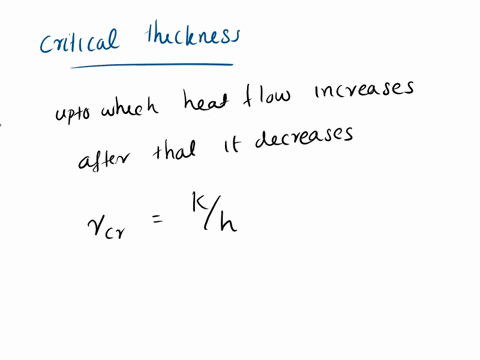 Critical thickness
upto which heat flow increases
after that it decreases
rcr = K/h